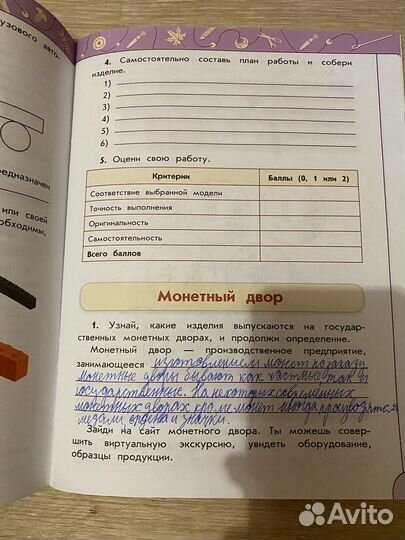 узового авто-
4. Самостоятельно составь план работы и собери
изделие.
1)
2)
3)
4)
5)
6)
5. Оцени свою работу.
Критерии Баллы (0, 1 или 2)
Соответствие выбранной модели
Точность выполнения
Оригинальность
Самостоятельность
Всего баллов
редназначен
или своей
еобходимы,
Монетный двор
1. Узнай, какие изделия выпускаются на государ-
ственных монетных дворах, и продолжи определение.
Монетный двор — производственное предприятие,
занимающееся изготовлением монет по заказу
монетные дворы бывают как частные так и
государственные. На некоторых современных
монетных дворах кроме монет иногда производятся
медали ордена и значки.
Зайди на сайт монетного двора. Ты можешь совер-
шить виртуальную экскурсию, увидеть оборудование,
образцы продукции.
Avito